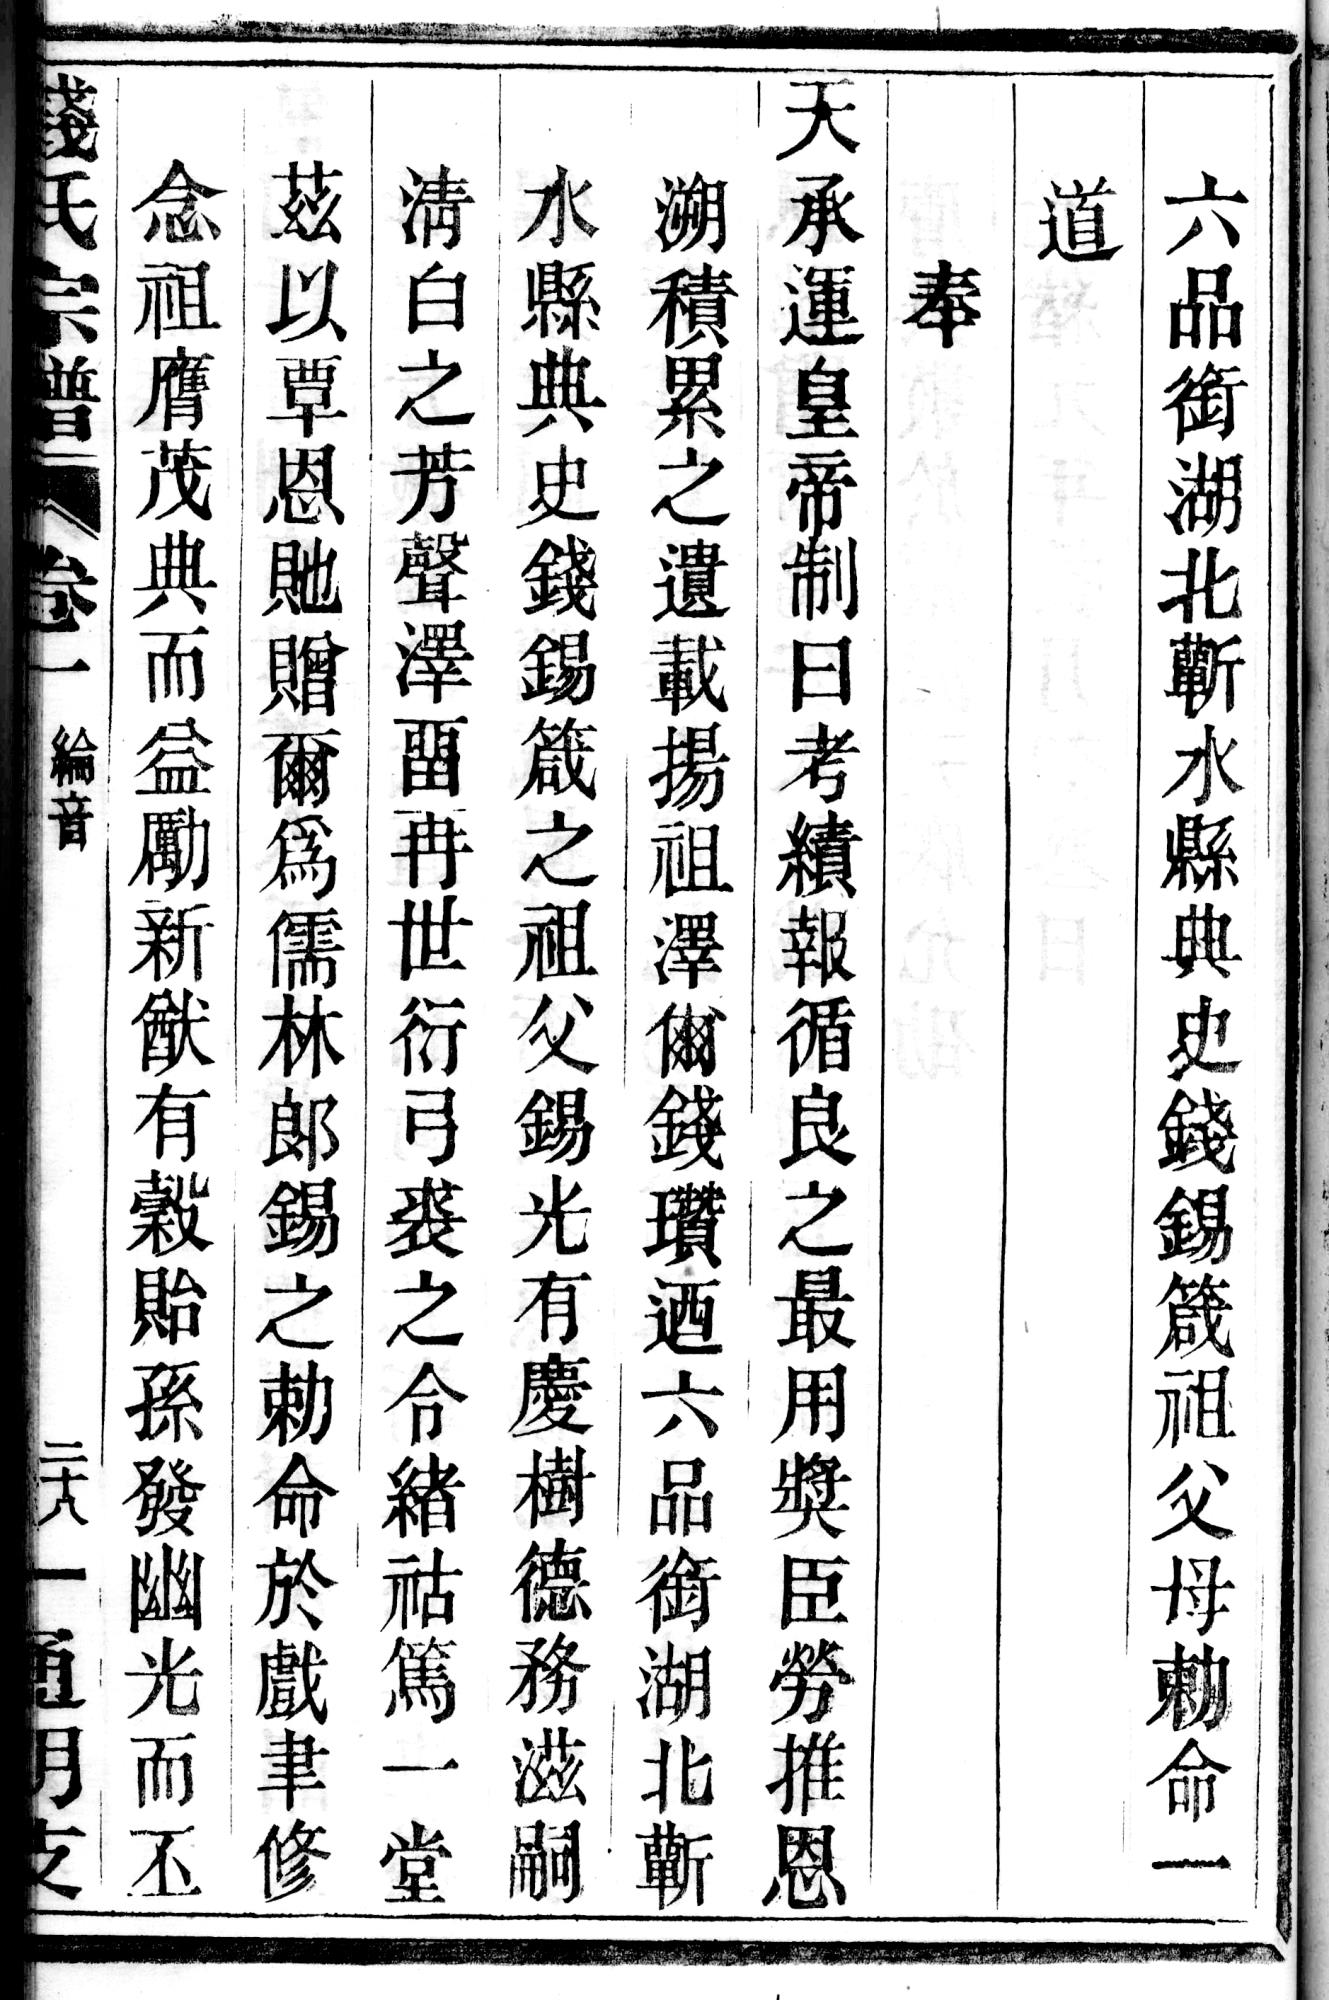 六品銜湖北蘄水縣典史錢錫箴祖父母勅命一
道
奉
天承運皇帝制曰考績報循良之最用獎臣勞推恩
溯積累之遺載揚祖澤爾錢瓚迺六品銜湖北蘄
水縣典史錢錫箴之祖父錫光有慶樹德務滋嗣
清白之芳聲澤畱冉世衍弓裘之令緒祜篤一堂
茲以覃恩貤贈爾爲儒林郎錫之勅命於戲聿修
念祖膺茂典而益勵新猷有穀貽孫發幽光而丕
錢氏宗譜 卷一 綸音 二十八 一 通明支